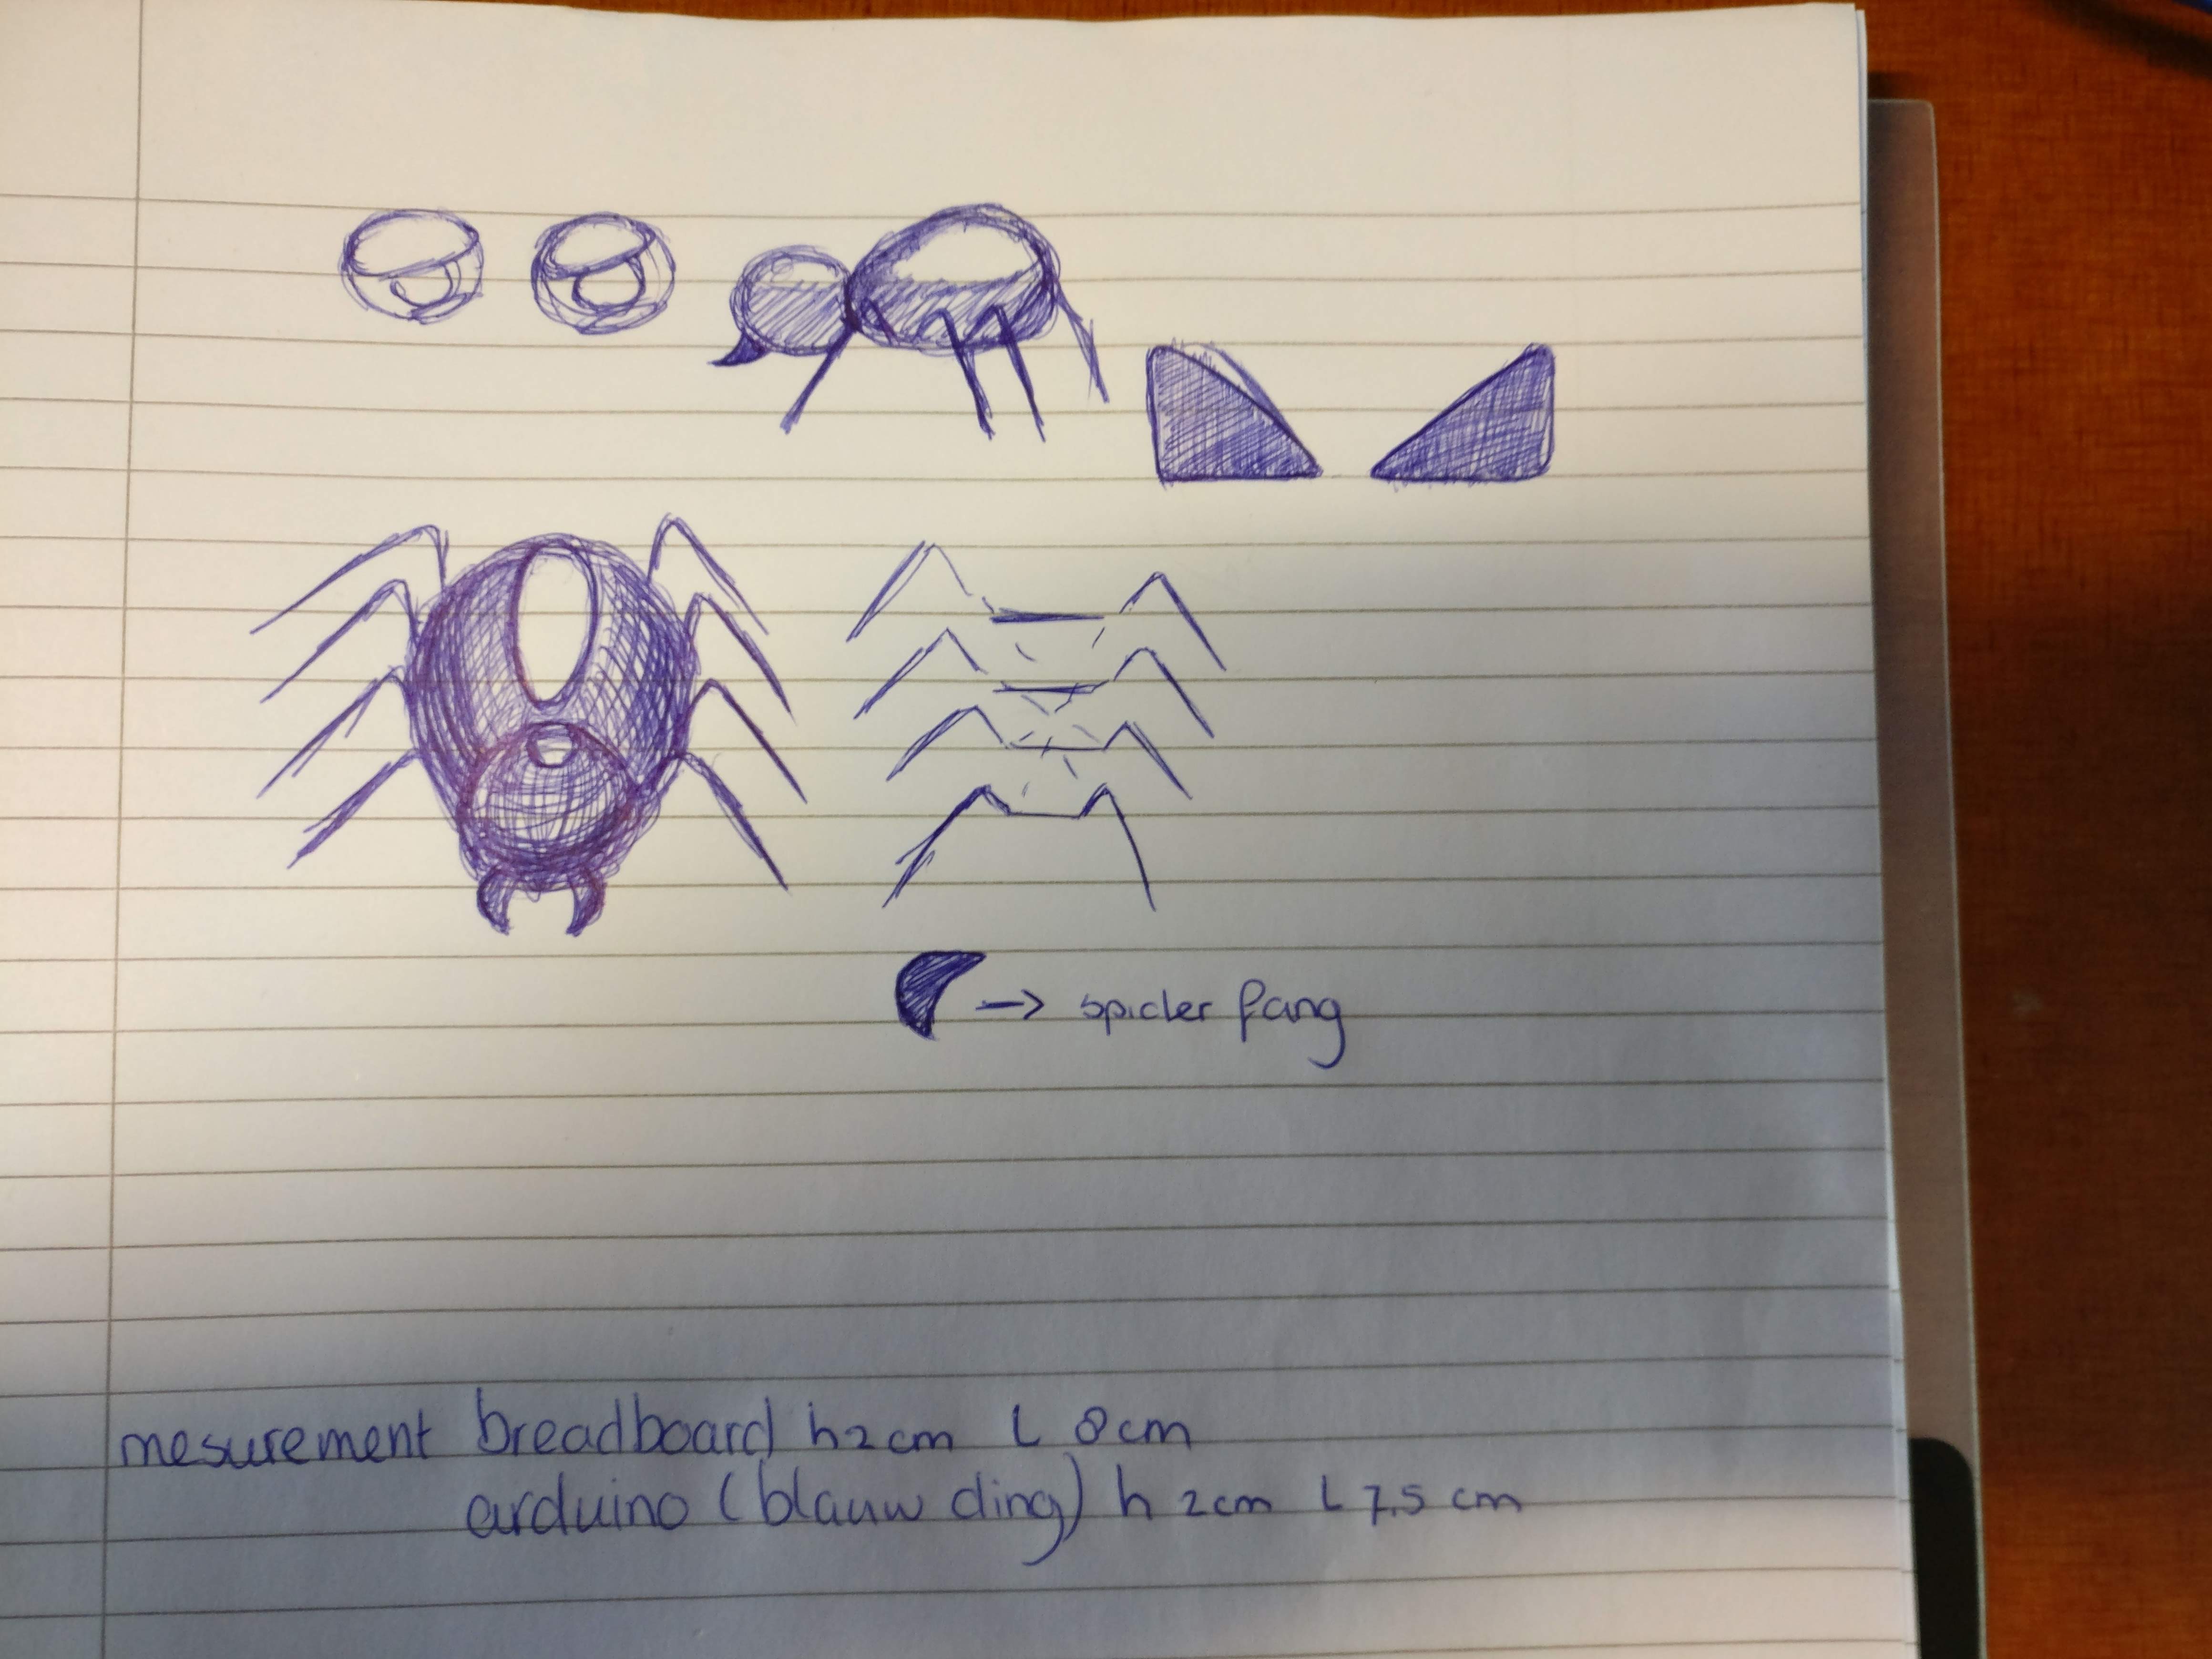 → spider fang
mesurement breadboard h 2 cm L 8 cm
arduino (blauw ding) h 2 cm L 7,5 cm